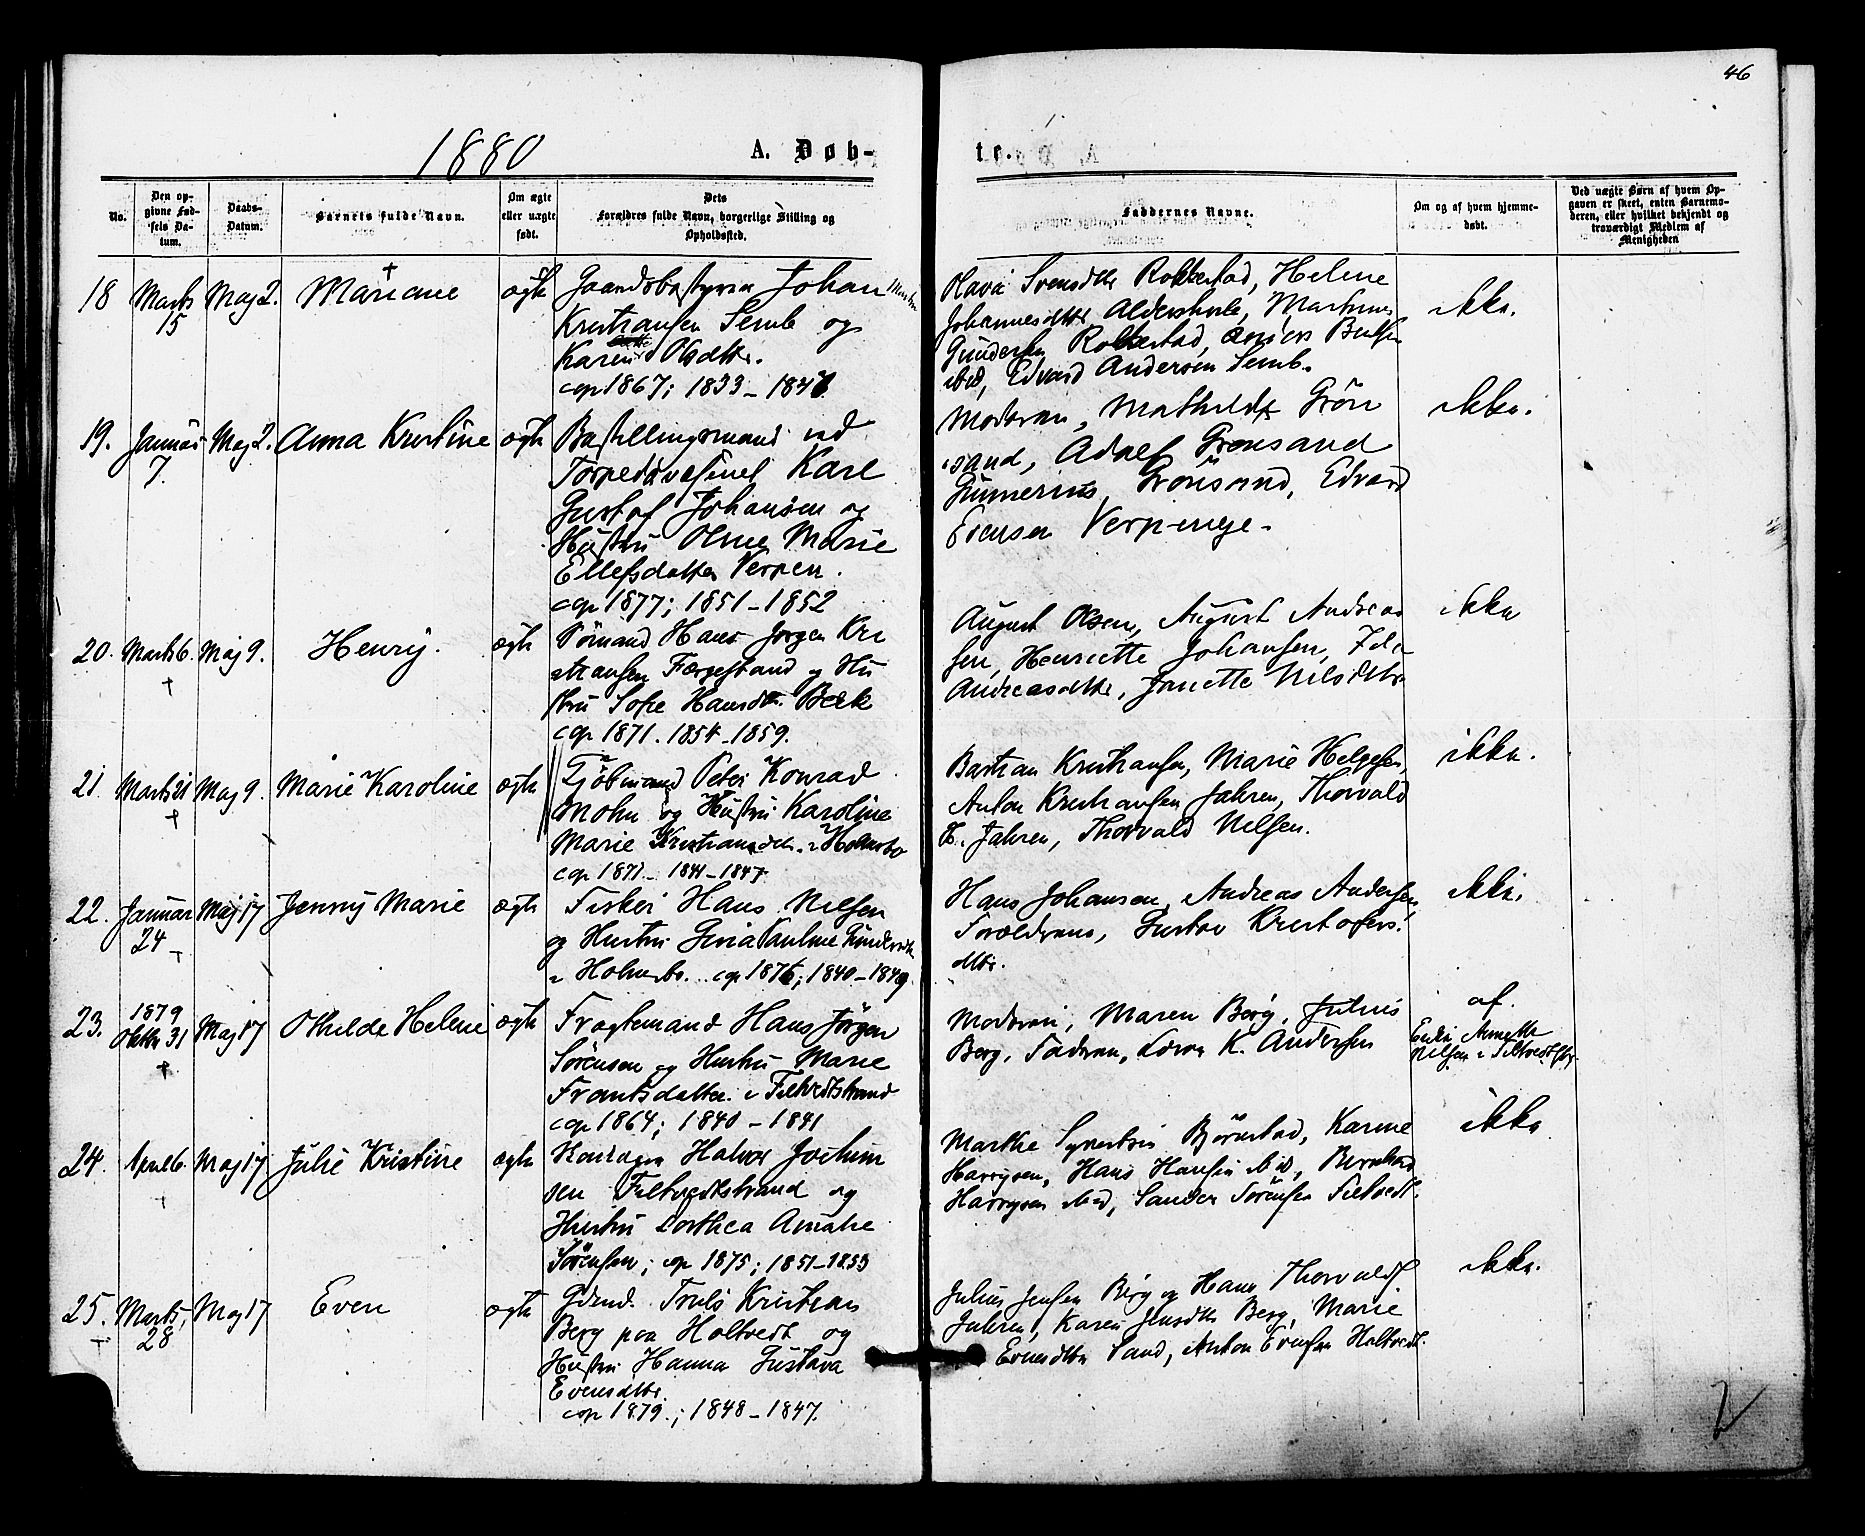 46
1880
A. Døb-
te.
No.
Den op-
givne Fød-
sels Da-
tum.
Daabs-
Datum.
Barnets fulde Navn.
Om ægte
eller uægte
født.
Dets
Forældres fulde Navn, borgerlige Stilling og
Opholdssted.
Faddernes Navne.
Om og af hvem hjemme-
døbt.
Ved uægte Børn af hvem Op-
gaven er skeet, enten Barnemo-
deren, eller hvilket bekjendt og
troværdigt Medlem af
Menigheden
18 Marts 15 Maj 2. Mariane ægte
Gaardsbestyrer Johan
Kristiansen Semb og
Karen Olsdtr.
cop 1867; 1833 -
Helene
Johannesdtr Martinus
Gundersen Rokkestad,
ibid, Edvard Andersen Semb.
ikke.
19. Januar 7. Maj 2. Anna Kristine ægte
Bestillingsmand ved
Torpedovæsenet Karl
Gustaf Johansen og
Hustru Oline Marie
Ellefsdatter Verpen.
cop 1877; 1851 - 1852
Moderen, Mathilde Grøn
sand, Adolf Grønsand
Gunnerius Grønsand, Edvard
Evensen
ikke.
20. Marts 6. Maj 9. Henrij. ægte
Sømand Hans Jørgen Kri
stiansen Færgestrand og Hu
stru Sofie Hansdtr. Bæk
cop 1871. 1854 - 1859.
August Olsen, August Andreas
sen, Henriette Johansen,
Andreasdtr, Janette Nilsdtr
ikke
21. Marts 21 Maj 9. Marie Karoline ægte
Peter Konrad
Mohn og Hustru Karoline
Marie Kristiansdtr. i Holmsbo
cop 1871 - 1841 - 1847
Bastian Kristiansen, Marie Helgesen,
Anton Kristiansen Jahren, Thorvald
H. Jahren, Thorvald Nilsen.
ikke.
22. Januar 24 Maj 17 Jenny Marie ægte
Fisker Hans Nilsen
og Hustru Pauline Gundersdtr
i Holmsbo. cop 1876; 1840 - 1849.
Hans Johansen, Andreas Andersen,
Forældrene, Gustav Kristofers.
dtr.
ikke.
23. 1879 Oktbr 31 Maj 17 Othilde Helene ægte
Fragtemand Hans Jørgen
Sørensen og Hustru Marie
Frantsdatter i Filtvedtstrand
cop 1864; 1840 - 1841
Moderen, Maren Berg, Julius
Berg, Faderen, K. Andersen
af
Nilsen i
24. April 6. Maj 17 Julie Kristine ægte
Halvor Jochum
sen Filtvedtstrand og
Hustru Dorthea Amalie
Sørensen; cop 1875; 1851 - 1853
Marthe Bjørnstad, Karine
Harrysen, Hans Hansen ibid, Bernhard
Harrysen ibid, Sander Sørensen Filtvedt.
ikke
25. Marts 28 Maj 17 Even ægte
Gdmd. Truls Kristian
Berg paa Holtvedt og
Hustru Hanna Gustava
Evensdtr.
cop 1879.; 1848 - 1847.
Julius Jensen Berg og Hans Thorvalds
Jahren, Karen Jensdtr Berg, Marie
Evensdtr Sand, Anton Evensen Holtvedt.
ikke.